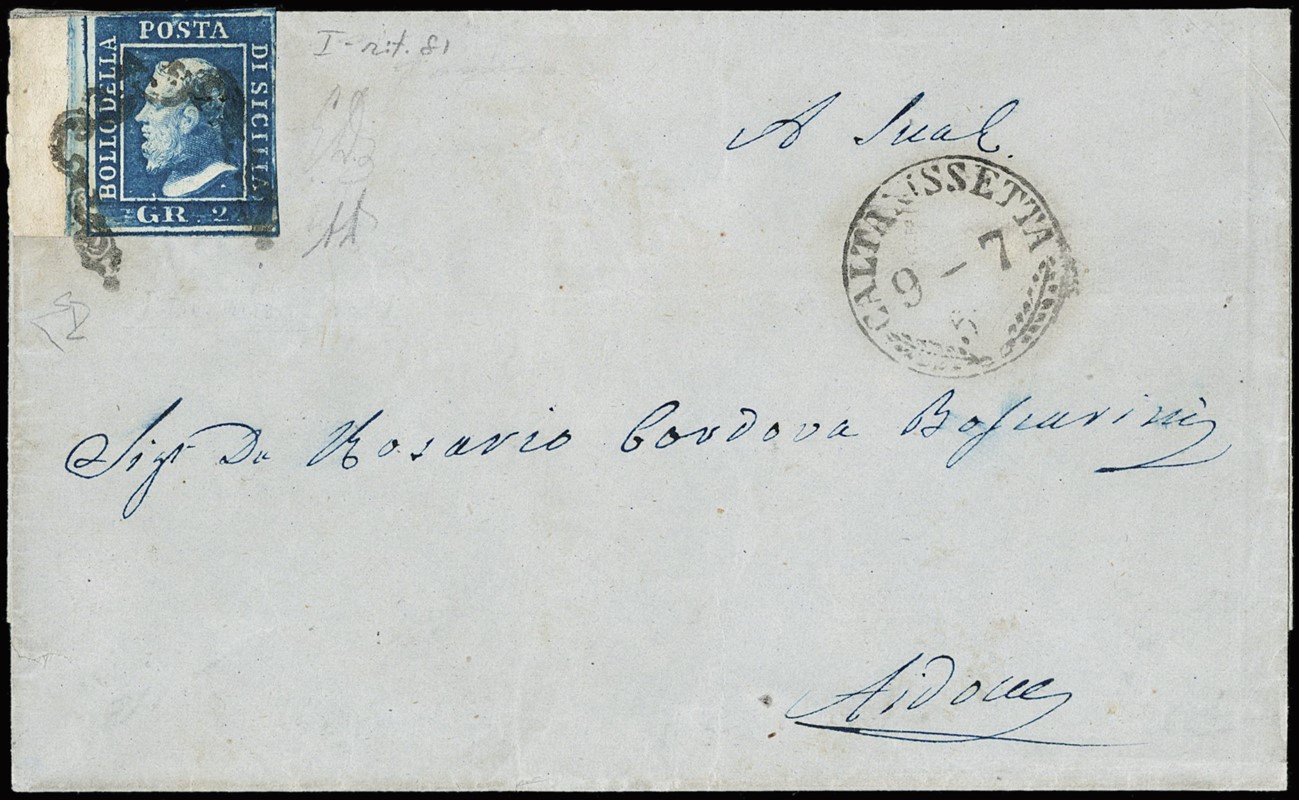 POSTA
BOLLO DELLA
DI SICILIA
GR. 2
I - rit. 81
A
CALTANISSETTA
9 - 7
5
Sigr Dn Rosario Cordova Boscarini
Aidone